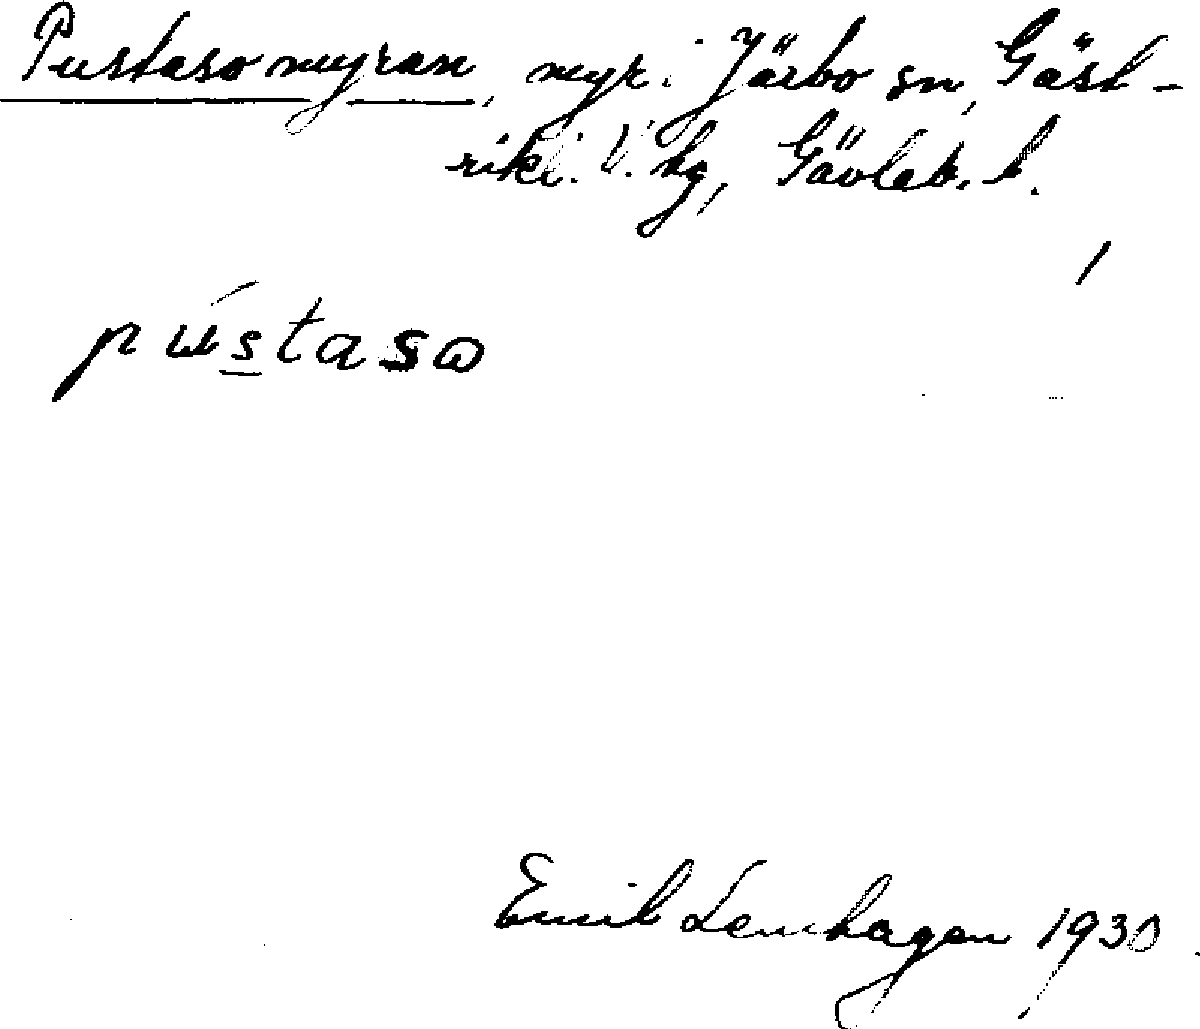 Pustasomyran, myr i Järbo sn, Gäst-
rikl. V. hg, Gävleb. l.
pústaso
Emil Lemhagen 1930